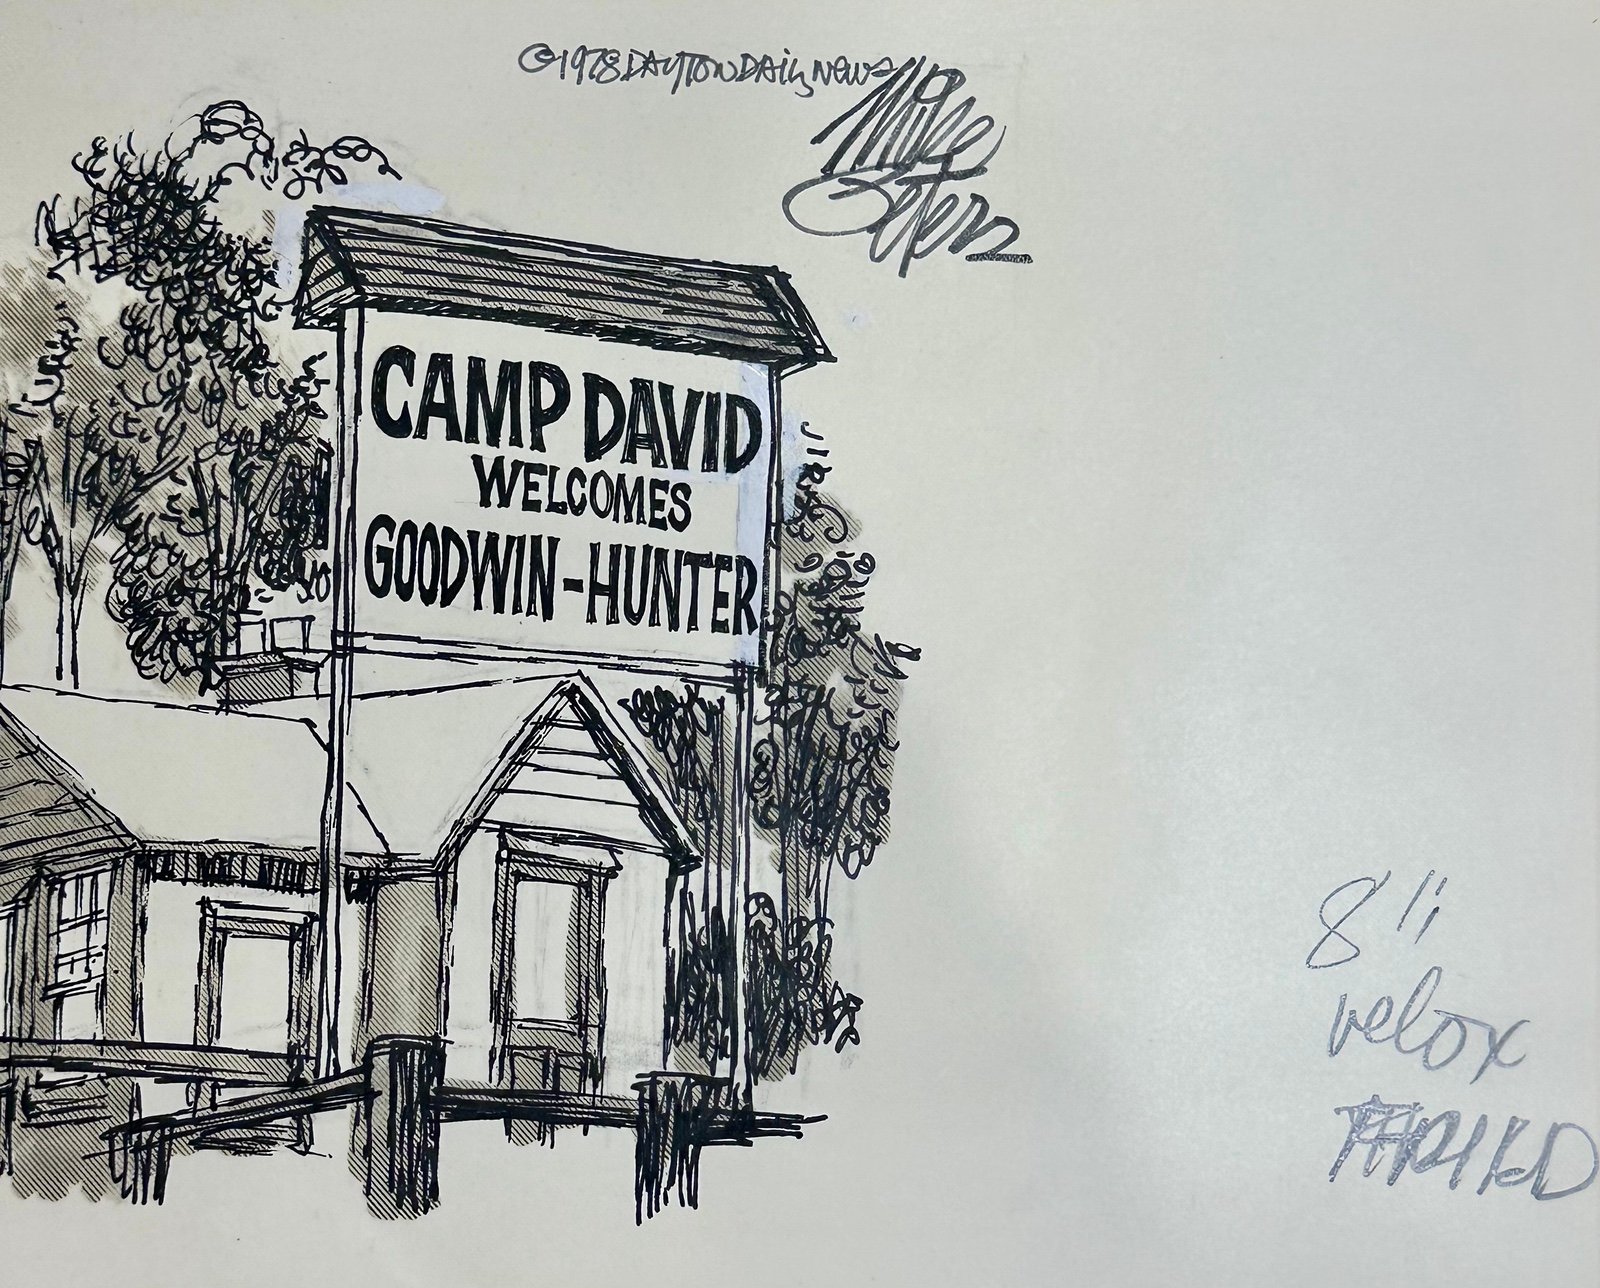 ©1978 DAYTON DAILY NEWS
Mike
Peters
CAMP DAVID
WELCOMES
GOODWIN-HUNTER
8"
velox